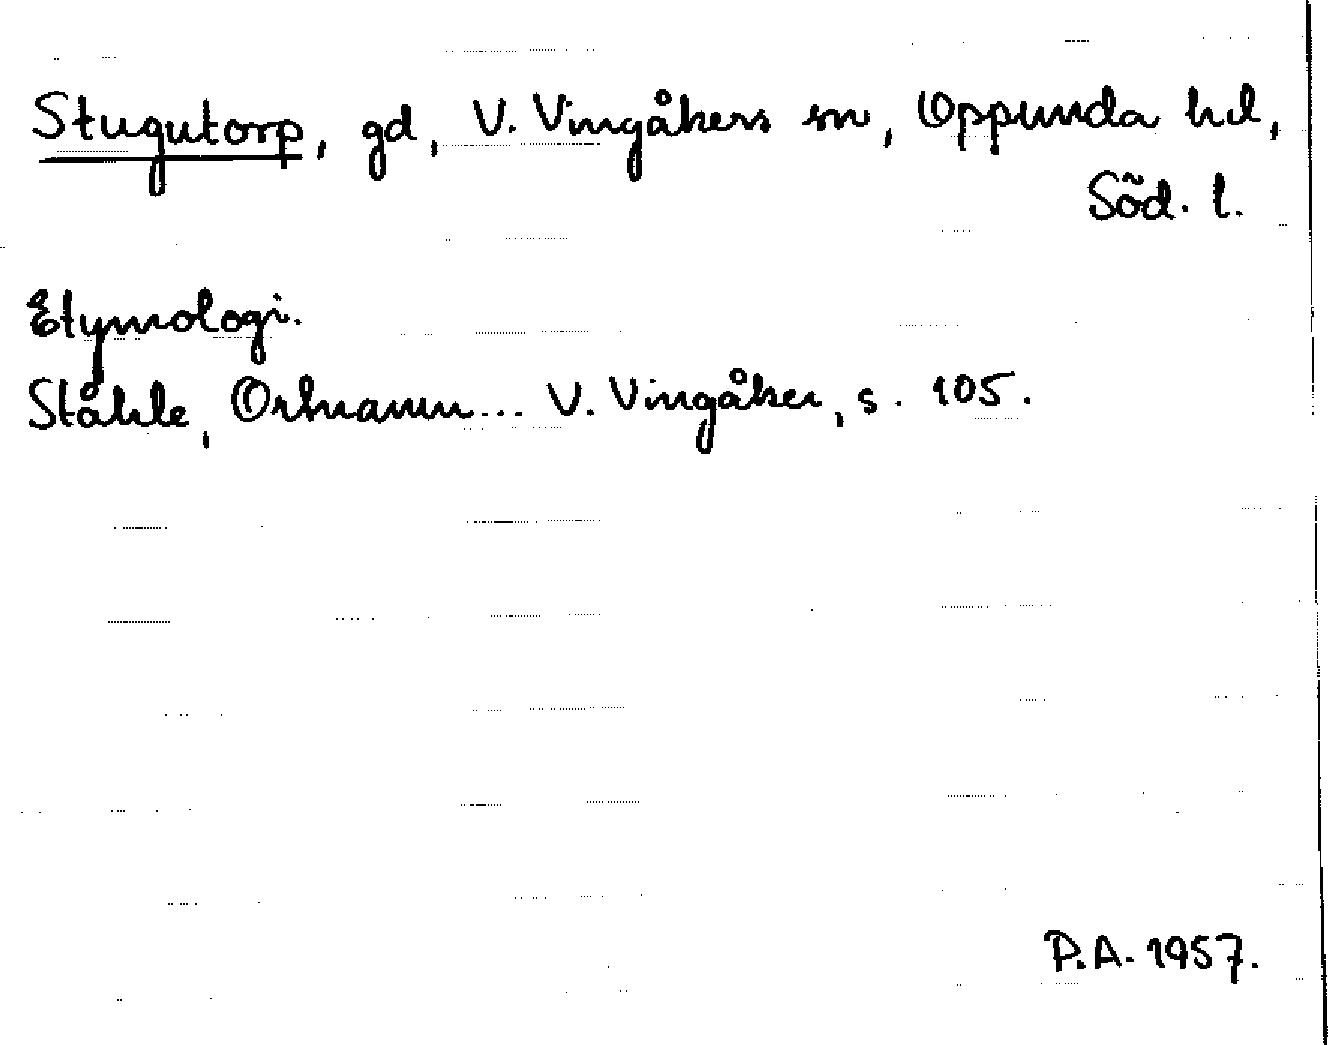 Stugutorp, gd, V. Vingåkers sn, Oppunda hd,
Söd. l.
Etymologi.
Ståhle, Ortnamn... V. Vingåker, s. 105.
P.A. 1957.